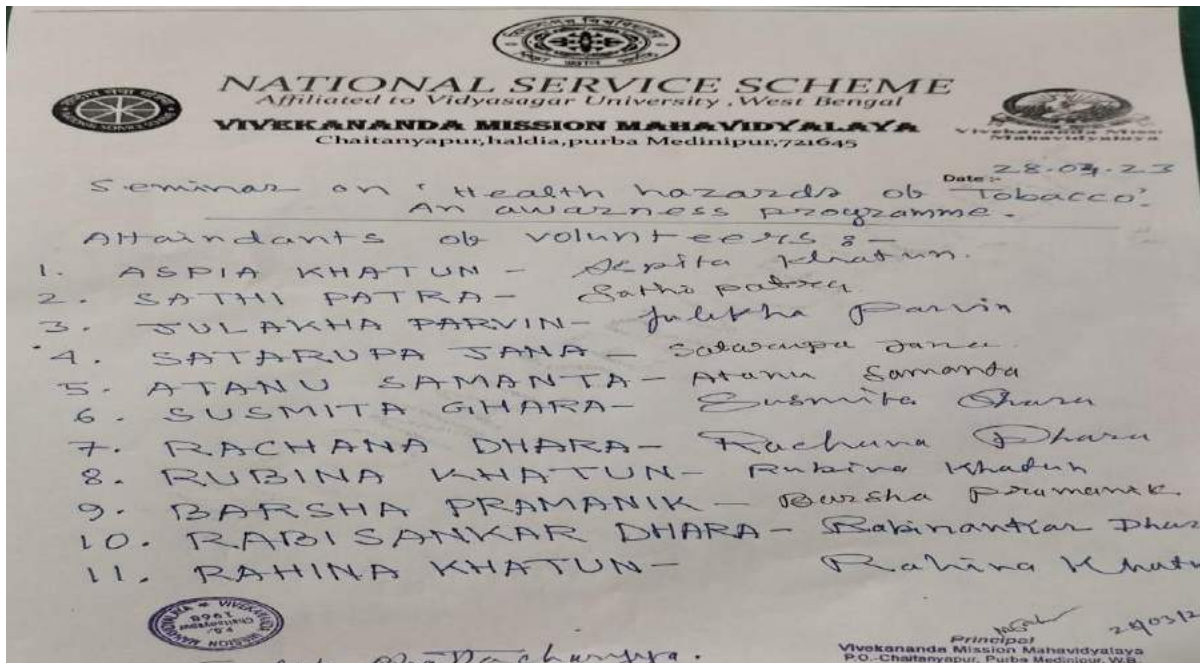 NATIONAL SERVICE SCHEME
Affiliated to Vidyasagar University ,West Bengal
VIVEKANANDA MISSION MAHAVIDYALAYA
Chaitanyapur,haldia,purba Medinipur,721645
Vivekananda Miss
Mahavidyalaya
Date :-
Seminar on 'Health hazards ob Tobacco'.
An awarness programme.
Attaindants ob volunteers :-
1. ASPIA KHATUN - Aspita Khatun.
2. SATHI PATRA - Sathi patra
3. JULAKHA PARVIN - Julekha Parvin
4. SATARUPA JANA - Satarupa Jana
5. ATANU SAMANTA - Atanu Samanta
6. SUSMITA GHARA - Susmita Ghara
7. RACHANA DHARA - Rachana Dhara
8. RUBINA KHATUN - Rubina Khatun
9. BARSHA PRAMANIK - Barsha Pramanik
10. RABI SANKAR DHARA - Rabisankar Dhar
11. RAHINA KHATUN - Rahina Khatu
VIVEKANANDA MISSION MAHAVIDYALAYA
Principal
Vivekananda Mission Mahavidyalaya
P.O.-Chaitanyapur, Purba Medinipur, W.B.